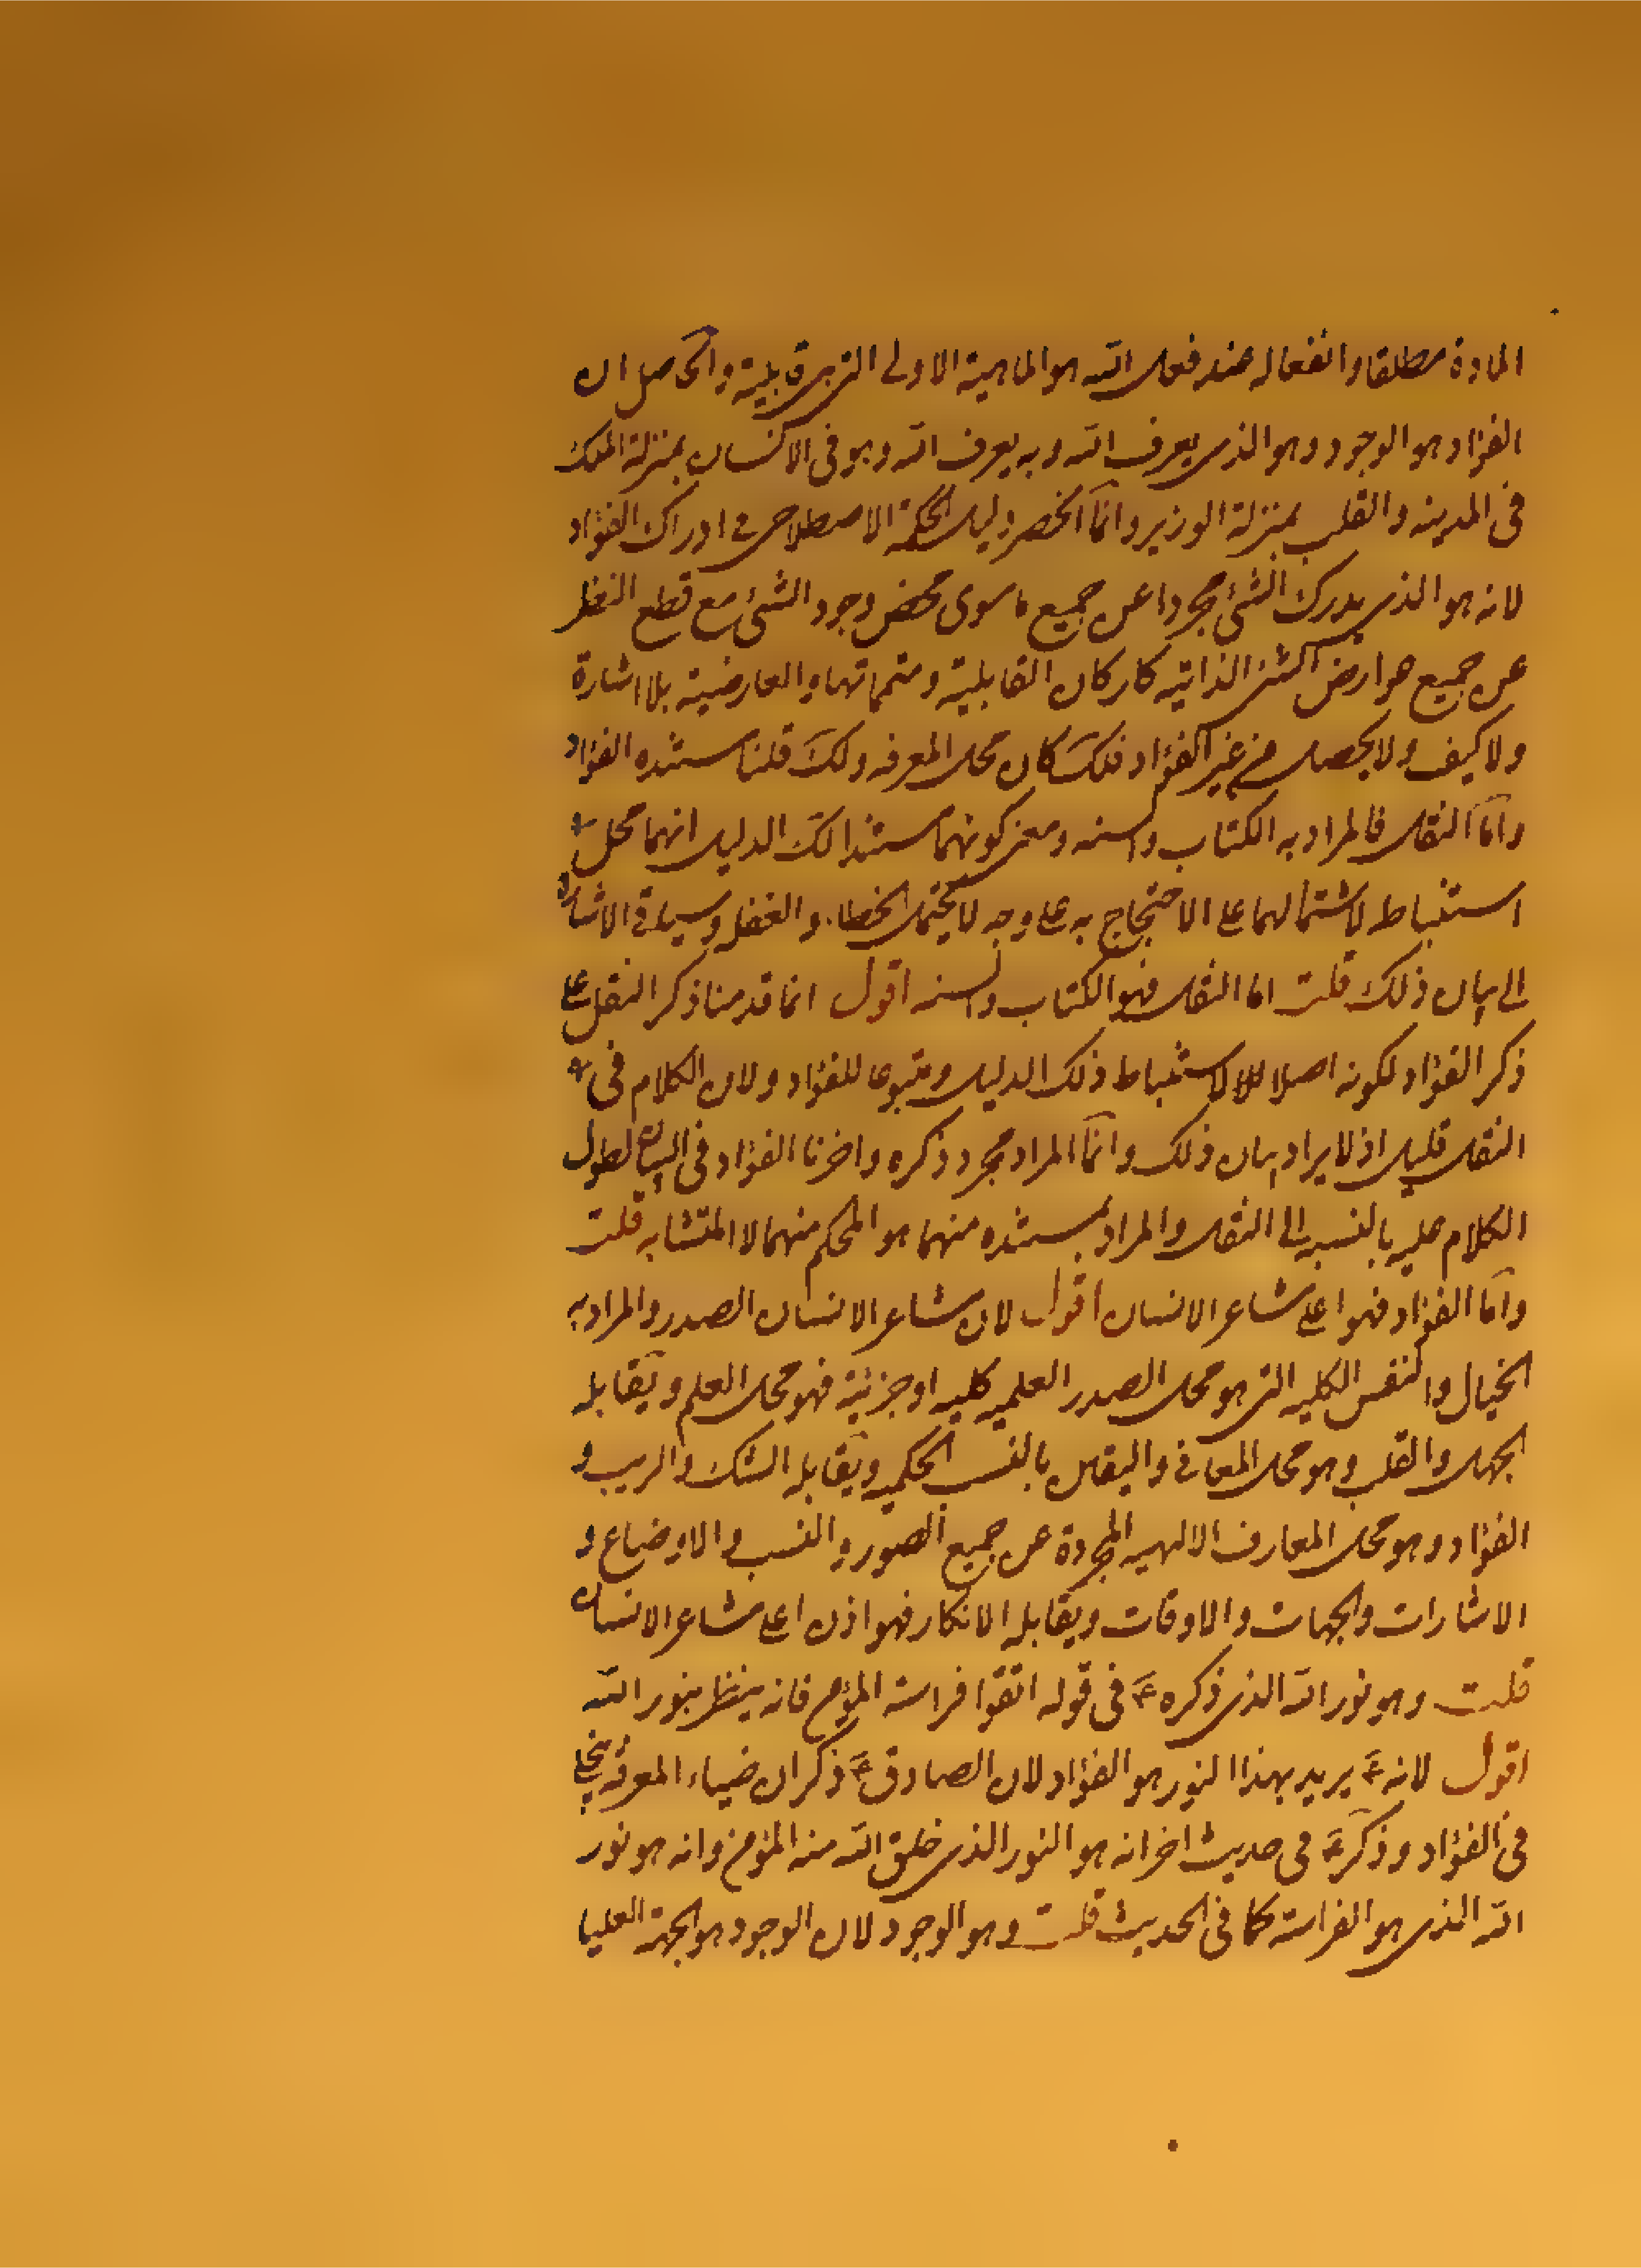 المادة مطلقا وانفعاله عند فعل الله هو الماهية الاولى التى هى قابلية والحاصل ان
الفؤاد هو الوجود وهو الذى يعرف الله وبه يعرف الله وهو فى الانسان بمنزلة الملك
فى المدينه والقلب بمنزلة الوزير وانما انحصر دليل الحكمة الاصطلاحى فى ادراك الفؤاد
لانه هو الذى يدرك الشئ مجردا عن جميع ما سوى محض وجود الشئ مع قطع النظر
عن جميع عوارض الشئ الذاتيه كاركان القابلية ومتمماتها والعارضية بلا اشارة
ولا كيف ولا يحصل من غير الفؤاد فلذلك كان محل المعرفه ولذلك قلنا مستنده الفؤاد
واما النقل فالمراد به الكتاب والسنه ومعنى كونهما مستندا لذلك الدليل انهما محل
استنباط لاشتمالهما على الاحتجاج به على وجه لا يحتمل الخطاء والغفل وسياتى الاشارة
الى بيان ذلك قلت اما النقل فهو الكتاب والسنه اقول انما قدمنا ذكر النقل على
ذكر الفؤاد لكونه اصلا للاستنباط ذلك الدليل ومتبوعا للفؤاد ولان الكلام فى
النقل قليل اذ لا يراد بيان ذلك وانما المراد مجرد ذكره واخرنا الفؤاد فى البيان لطول
الكلام عليه بالنسبه الى النقل والمراد بمستنده منهما هو المحكم منهما لا المتشابه قلت
واما الفؤاد فهو اعلى مشاعر الانسان اقول لان مشاعر الانسان الصدر والمراد به
الخيال والنفس الكليه التى هو محل الصدر العلميه كليه او جزئية فهو محل العلم ويقابله
الجهل والقلب وهو محل المعانى واليقين بالنسب الحكميه ويقابله الشك والريب و
الفؤاد وهو محل المعارف الالهيه المجردة عن جميع الصور والنسب والاوضاع و
الاشارات والجهات والاوقات ويقابله الانكار فهو اذن اعلى مشاعر الانسان
قلت وهو نور الله الذى ذكره ع فى قوله اتقوا فراسة المؤمن فانه ينظر بنور الله
اقول لانه ع يريد بهذا النور هو الفؤاد لان الصادق ع ذكر ان ضياء المعرفة
فى الفؤاد وذكر ع فى حديث اخر انه هو النور الذى خلق الله منه المؤمن وانه هو نور
الله الذى هو الفراسة كما فى الحديث قلت وهو الوجود لان الوجود هو الجهة العليا